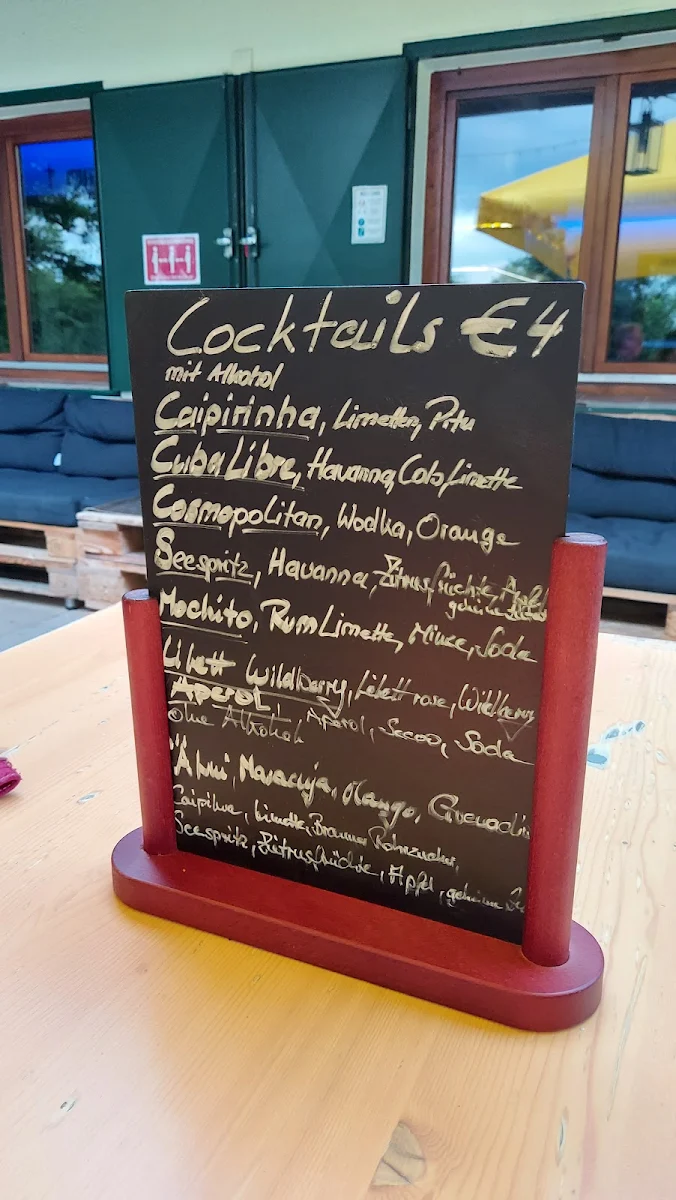 Cocktails €4
mit Alkohol
Caipirinha, Limetten, Pitu
Cuba Libre, Havanna, Cola, Limette
Cosmopolitan, Wodka, Orange
Seespritz, Havanna, Zitrusfrüchte, Apfel
geheime
Mochito, Rum Limette, Minze, Soda
Lilett Wildberry, Lilett rose, Wildberry
Aperol, Aperol, Secco, Soda
ohne Alkohol
Maracuja, Mango, Grenadin
Limette, Brauner Rohrzucker,
Seespritz, Zitrusfrüchte, Apfel, geheime